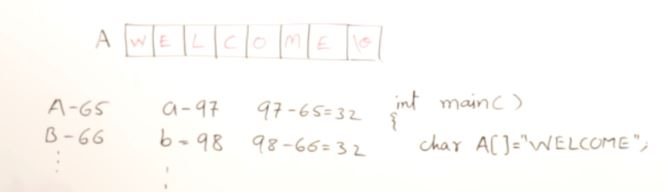 A W E L C O M E \0
A-65 a-97 97-65=32 int main()
{
B-66 b-98 98-66=32 char A[]="WELCOME";